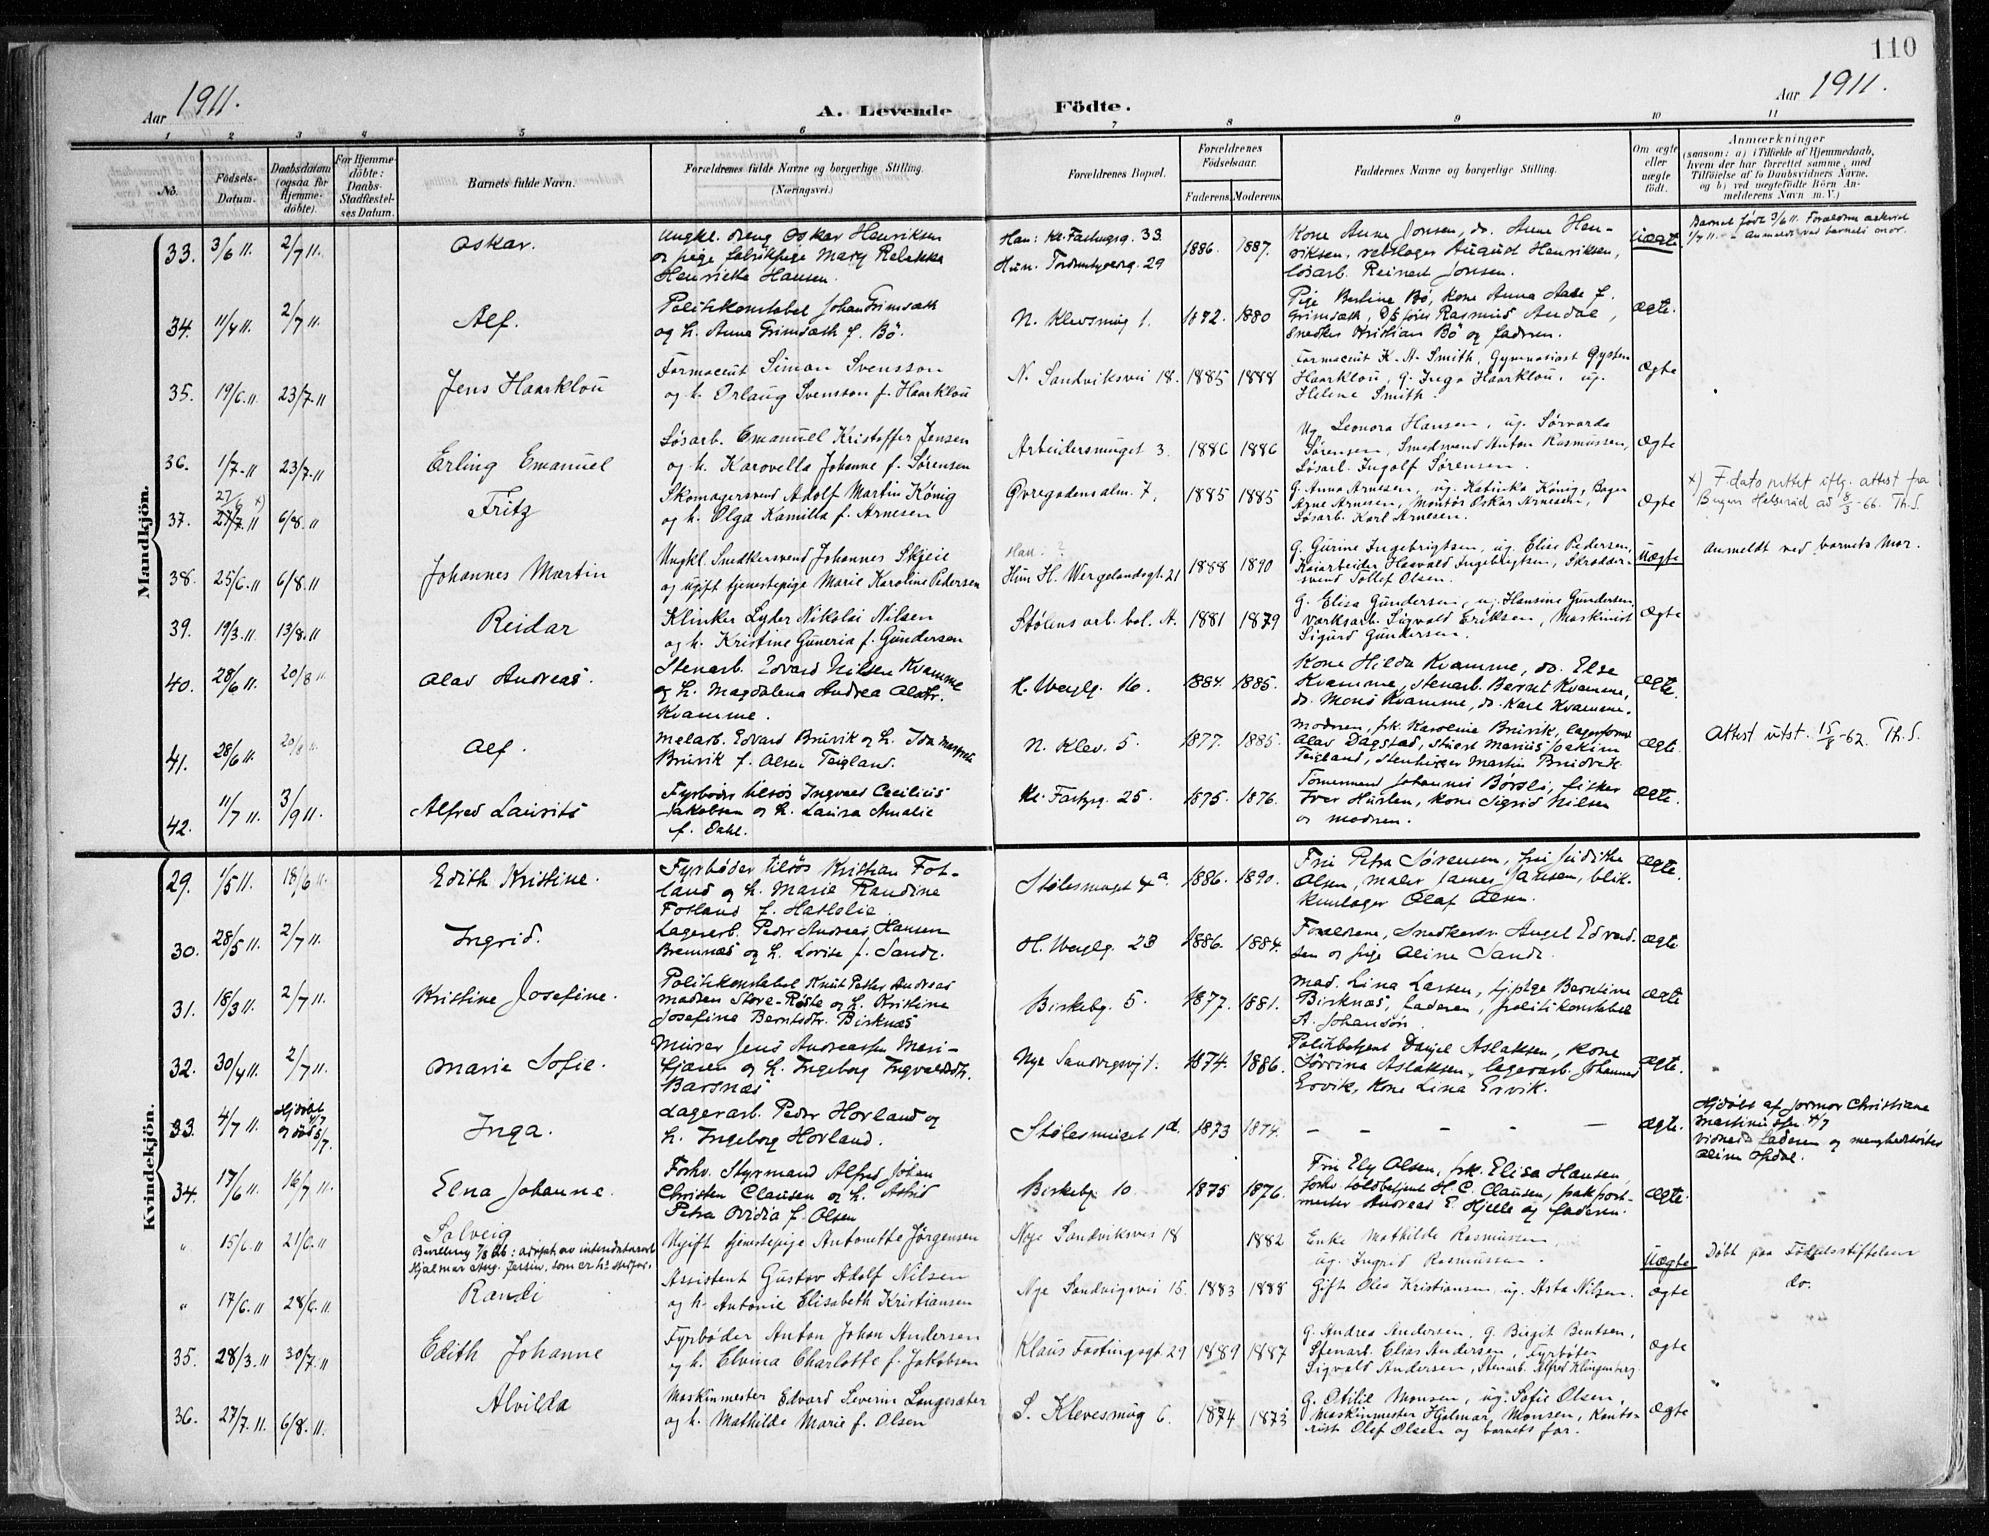 110
Aar 1911.
A. Levende Födte.
Aar 1911.
1 2 3 4 5 6 7 8 9 10 11
No.
Födsels-Datum.
Daabsdatum (ogsaa for Hjemmedöbte).
For Hjemmedöbte: Daabs-Stadfæstelses Datum.
Barnets fulde Navn.
Forældrenes fulde Navne og borgerlige Stilling.
(Næringsvei.)
Forældrenes Bopæl.
Forældrenes Födselsaar.
Faderens. Moderens.
Faddernes Navne og borgerlige Stilling.
Om ægte eller uægte født.
Anmærkninger
(saasom: a) i Tilfælde af Hjemmedaab,
hvem der har forrettet samme, med
Tilföielse af to Daabsvidners Navne.
og b) ved uægtefödte Börn An-
melderens Navn m. V.)
Mandkjön.
33. 3/6 11. 2/7 11 Oskar. Ungkl. dreng Oskar Henriksen
og pige fabrikpige Mary Rebekka
Henriette Hansen.
Han: Kl. Fastingsg. 33.
Hun: Tordenskjoldsg. 29
1886. 1887. Kone Anne Jonsen, do. Anne Hen-
riksen, rebslager August Henriksen,
løsarb. Reinert Jonsen.
Uægte
Barnet født 3/6 11. Forældrene
1/7 11. Anmeldt ved barnets mor.
34. 11/4 11. 2/7 11 Alf. Politikonstabel Johan Grimsæth
og h. Anna Grimsæth f. Bö.
N. Klevsmug 1. 1872. 1880 Pige Bertine Bö, kone Anna Aase f.
Grimsæth, Rasmus Andal,
snedker Kristian Bö og faderen.
ægte.
35. 19/6 11 23/7 11 Jens Haarklou Farmaceut Simon Svensson
og h. Orlaug Svensson f. Haarklou
N. Sandviksvei 18. 1885 1888 Farmaceut K. A. Smith, Gymnasiast Øysten
Haarklou, g. Inga Haarklou, ug.
Helene Smith.
Ægte
36. 1/7 11 23/7 11 Erling Emanuel Løsarb. Emanuel Kristoffer Jensen
og h. Karovella Johanne f. Sørensen
Arbeidersmuget 3. 1886 1886 Ug Leonora Hansen, ug. Sørvarda
Sørensen, Smedsvend Anton Rasmussen,
Løsarb. Ingolf Sørensen.
Ægte
37. 27/6 x) 27/7 11 6/8 11 Fritz Skomagersvend Adolf Martin König
og h. Olga Kamilla f. Arnesen
Øvregadens alm. 7. 1885 1885 G. Anna Arnesen, ug. Katinka König, Bager
Arne Arnesen, Montör Oskar Arnesen,
Løsarb. Karl Arnesen.
Ægte
x) F.dato rettet iflg. attest fra
Bergen Helseråd av 8/3-66. Th.S.
38. 25/6 11 6/8 11 Johannes Martin Ungkl. Snedkersvend Johannes Skjeie
og ugift tjenestepige Marie Karoline Pedersen
Han: ?
Hun H. Wergelandsgt. 21
1888 1890 G. Gurine Ingebrigtsen, ug. Elise Pedersen,
Kaiarbeider Hasvald Ingebrigtsen, Skrædder-
svend Tollef Olsen.
Uægte
Anmeldt ved barnets Mor.
39. 19/3 11 13/8 11 Reidar Klinker Lyder Nikolai Nilsen
og h. Kristine Guneria f. Gundersen
Stølens arb. bol. A. 1881 1879 G. Elisa Gundersen, ug. Hansine Gundersen,
Værksarb. Sigvald Eriksen, Maskinist
Sigurd Gundersen.
Ægte
40. 28/6 11. 20/8 11 Olav Andreas. Stenarb. Edvard Nilsen Kvamme
og h. Magdalena Andrea Olsdtr.
Kvamme.
H. Weglg. 16. 1884. 1885. Kone Hilda Kvamme, do. Else
Kvamme, stenarb. Bernt Kvamme,
do. Mons Kvamme, do. Karl Kvamme.
ægte.
41. 28/6 11. 20/8 11 Alf. Malarb. Edvard Bruvik og h. Ida Margrete
Bruvik f. Olsen Teigland.
N. Klev. 5. 1877. 1885. Modren, frk. Karoline Bruvik, lagerformd.
Olav Dagstad, stuert Marius Joakim
Teigland, stenhugger Martin Bruvik.
ægte.
Attest utst. 15/8-62. Th.S.
42. 11/7 11. 3/9 11. Alfred Laurits Fyrbøder tilsös Ingvald Cecilius
Jakobsen og h. Laura Amalie
f. Dahl.
Kl. Fastgg. 25. 1875. 1876. Tømmermand Johannes Børdli, fisker
Iver Husten, kone Sigrid Nilsen
og modren.
ægte.
Kvindekjön.
29. 1/5 11. 18/6 11. Edith Kristine. Fyrbøder tilsös Kristian Fot-
land og h. Marie Randine
Fotland f. Hatlelie.
Stølesmuget 4a 1886. 1890. Fru Petra Sørensen, fru Judithe
Olsen, maler James Jansen, blik-
kenslager Olaf Olsen.
ægte.
30. 28/5 11. 2/7 11. Ingrid. Lagerarb. Peder Andreas Hansen
Bremnæs og h. Lovise f. Sande.
H. Weglg. 23 1886. 1884. Forældrene, Snedkersv. Angel Edvard-
sen og pige Aline Sande.
ægte
31. 18/3 11. 2/7 11. Kristine Josefine. Politikonstabel Knut Peter Andreas
Madsen Store-Röste og h. Kristine
Josefine Berntsdtr. Birknæs
Birkebg. 5. 1877. 1881. Mad. Lina Larsen, tj.pige Berntine
Birknæs, Faderen, politikonstabel
A. Johansön.
ægte
32. 30/4 11. 2/7 11. Marie Sofie. Murer Jens Andreassen Meri-
tjæren og h. Ingeborg Ingvaldsdtr.
Barsnæs
Nye Sandvigsvj 1. 1874. 1886. Politibetjent Daniel Aslaksen, kone
Sørrina Aslaksen, lagerarb. Johannes
Ervik, kone Lina Ervik.
ægte.
33. 4/7 11. Hjdøbt 4/7 og død 5/7. Inga. Lagerarb. Peder Hovland og
h. Ingeborg Hovland.
Stølesmuget 1d. 1873 1874. – – – – –
ægte.
Hjdøbt af Jormor Christiane
Martinussen 4/7
vidner Faderen og menighedsøster
Aline Opdal.
34. 17/6 11. 16/7 11. Elna Johanne. Forhv. Styrmand Alfred Johan
Christen Clausen og h. Astrid
Petra Ovidia f. Olsen
Birkebg 10. 1875 1876. Fru Ely Olsen, frk. Elisa Hansen,
forhv. toldbetjent H. C. Clausen, pakpost-
mester Andreas E. Hjelle og faderen.
ægte.
" 15/6 11 21/6 11 Solveig
Bevilling 7/8 26: adopt. av intendatur
Hjalmar Aug. Jessen, som er hs stedfar.
Ugift tjenestepige Antonette Jørgensen
Nye Sandviksvei 18 1882 Enke Mathilde Rasmussen,
ug. Ingrid Rasmussen.
Uægte
Døbt paa Fødselsstiftelsen
" 17/6 11 28/6 11 Randi Assistent Gustav Adolf Nilsen
og h. Antonie Elisabeth Kristiansen
Nye Sandvigsvei 15. 1883 1888 Gift Olea Kristiansen, ug. Asta Nilsen.
Ægte
do.
35. 28/3 11 30/7 11 Edith Johanne Fyrbøder Anton Johan Andersen
og h. Elvina Charlotte f. Jakobsen
Klaus Fastingsgt 29 1889 1887 G. Andrea Andersen, g. Birgit Bentsen,
Stenarb. Elias Andersen, Fyrbøter
Sigvald Andersen, Stenarb. Alfred Klingenberg.
Ægte
36. 27/7 11. 6/8 11. Alvilda Maskinmester Edvard Severin Langesæter
og h. Mathilde Marie f. Olsen
S. Klevesmug 6. 1874 1873 G. Otilie Monsen, ug. Sofie Olsen,
Maskinmester Hjalmar Monsen, Kontо-
rist Olaf Olsen og barnets far.
Ægte